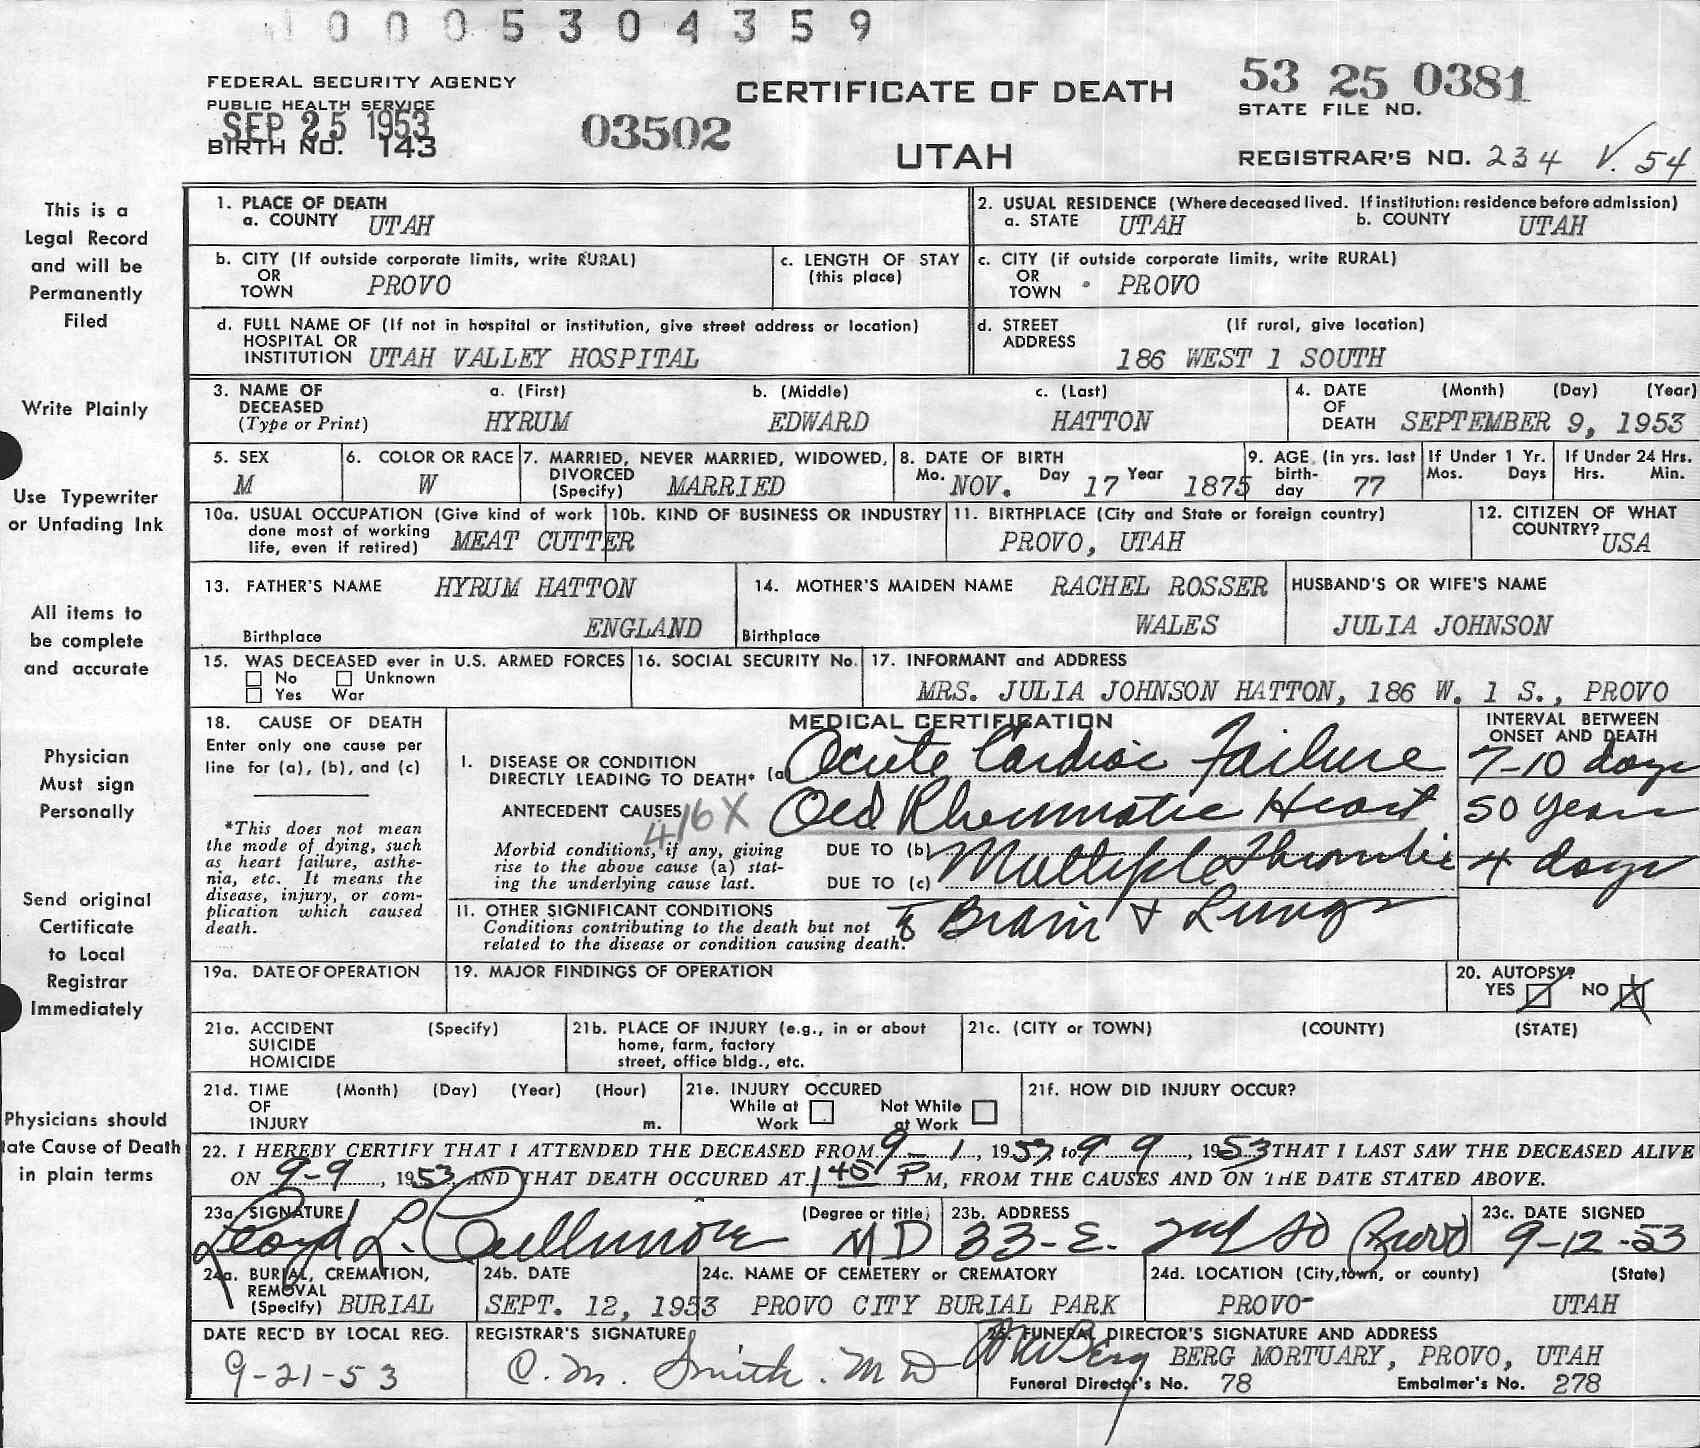 0005304359
FEDERAL SECURITY AGENCY
PUBLIC HEALTH SERVICE
SEP 25 1953
BIRTH NO. 143
03502
CERTIFICATE OF DEATH
UTAH
53 25 0381
STATE FILE NO.
REGISTRAR'S NO. 234 V. 54
This is a
Legal Record
and will be
Permanently
Filed
Write Plainly
Use Typewriter
or Unfading Ink
All items to
be complete
and accurate
Physician
Must sign
Personally
Send original
Certificate
to Local
Registrar
Immediately
Physicians should
ate Cause of Death
in plain terms
1. PLACE OF DEATH
a. COUNTY UTAH
2. USUAL RESIDENCE (Where deceased lived. If institution: residence before admission)
a. STATE UTAH b. COUNTY UTAH
b. CITY (If outside corporate limits, write RURAL)
OR
TOWN PROVO
c. LENGTH OF STAY
(this place)
c. CITY (if outside corporate limits, write RURAL)
OR
TOWN PROVO
d. FULL NAME OF (If not in hospital or institution, give street address or location)
HOSPITAL OR
INSTITUTION UTAH VALLEY HOSPITAL
d. STREET (If rural, give location)
ADDRESS
186 WEST 1 SOUTH
3. NAME OF DECEASED (Type or Print)
a. (First) b. (Middle) c. (Last)
HYRUM EDWARD HATTON
4. DATE OF DEATH (Month) (Day) (Year)
SEPTEMBER 9, 1953
5. SEX
M
6. COLOR OR RACE
W
7. MARRIED, NEVER MARRIED, WIDOWED,
DIVORCED
(Specify) MARRIED
8. DATE OF BIRTH
Mo. NOV. Day 17 Year 1875
9. AGE (in yrs. last
birth-
day 77
If Under 1 Yr.
Mos. Days
If Under 24 Hrs.
Hrs. Min.
10a. USUAL OCCUPATION (Give kind of work
done most of working
life, even if retired) MEAT CUTTER
10b. KIND OF BUSINESS OR INDUSTRY
11. BIRTHPLACE (City and State or foreign country)
PROVO, UTAH
12. CITIZEN OF WHAT
COUNTRY? USA
13. FATHER'S NAME HYRUM HATTON
Birthplace ENGLAND
14. MOTHER'S MAIDEN NAME RACHEL ROSSER
Birthplace WALES
HUSBAND'S OR WIFE'S NAME
JULIA JOHNSON
15. WAS DECEASED ever in U.S. ARMED FORCES
No Unknown
Yes War
16. SOCIAL SECURITY No.
17. INFORMANT and ADDRESS
MRS. JULIA JOHNSON HATTON, 186 W. 1 S., PROVO
18. CAUSE OF DEATH
Enter only one cause per
line for (a), (b), and (c)
*This does not mean
the mode of dying, such
as heart failure, asthe-
nia, etc. It means the
disease, injury, or com-
plication which caused
death.
MEDICAL CERTIFICATION
I. DISEASE OR CONDITION
DIRECTLY LEADING TO DEATH* (a) Acute Cardiac Failure
ANTECEDENT CAUSES 416X Old Rheumatic Heart
Morbid conditions, if any, giving
rise to the above cause (a) stat-
ing the underlying cause last.
DUE TO (b)
DUE TO (c) Multiple Thrombi
II. OTHER SIGNIFICANT CONDITIONS
Conditions contributing to the death but not
related to the disease or condition causing death.
to Brain & Lungs
INTERVAL BETWEEN
ONSET AND DEATH
7-10 days
50 years
4 days
19a. DATE OF OPERATION
19. MAJOR FINDINGS OF OPERATION
20. AUTOPSY?
YES NO
21a. ACCIDENT (Specify)
SUICIDE
HOMICIDE
21b. PLACE OF INJURY (e.g., in or about
home, farm, factory
street, office bldg., etc.
21c. (CITY or TOWN) (COUNTY) (STATE)
21d. TIME (Month) (Day) (Year) (Hour)
OF
INJURY m.
21e. INJURY OCCURED
While at Work Not While at Work
21f. HOW DID INJURY OCCUR?
22. I HEREBY CERTIFY THAT I ATTENDED THE DECEASED FROM 9-1, 1953 to 9 9, 1953 THAT I LAST SAW THE DECEASED ALIVE
ON 9-9, 1953, AND THAT DEATH OCCURED AT 1 40 P M, FROM THE CAUSES AND ON THE DATE STATED ABOVE.
23a. SIGNATURE (Degree or title)
Lloyd L. Cullimore MD
23b. ADDRESS
33-E. 2nd So Provo
23c. DATE SIGNED
9-12-53
24a. BURIAL, CREMATION,
REMOVAL
(Specify) BURIAL
24b. DATE
SEPT. 12, 1953
24c. NAME OF CEMETERY or CREMATORY
PROVO CITY BURIAL PARK
24d. LOCATION (City, town, or county) (State)
PROVO- UTAH
DATE REC'D BY LOCAL REG.
9-21-53
REGISTRAR'S SIGNATURE
C. M. Smith. MD
25. FUNERAL DIRECTOR'S SIGNATURE AND ADDRESS
BERG MORTUARY, PROVO, UTAH
Funeral Director's No. 78 Embalmer's No. 278